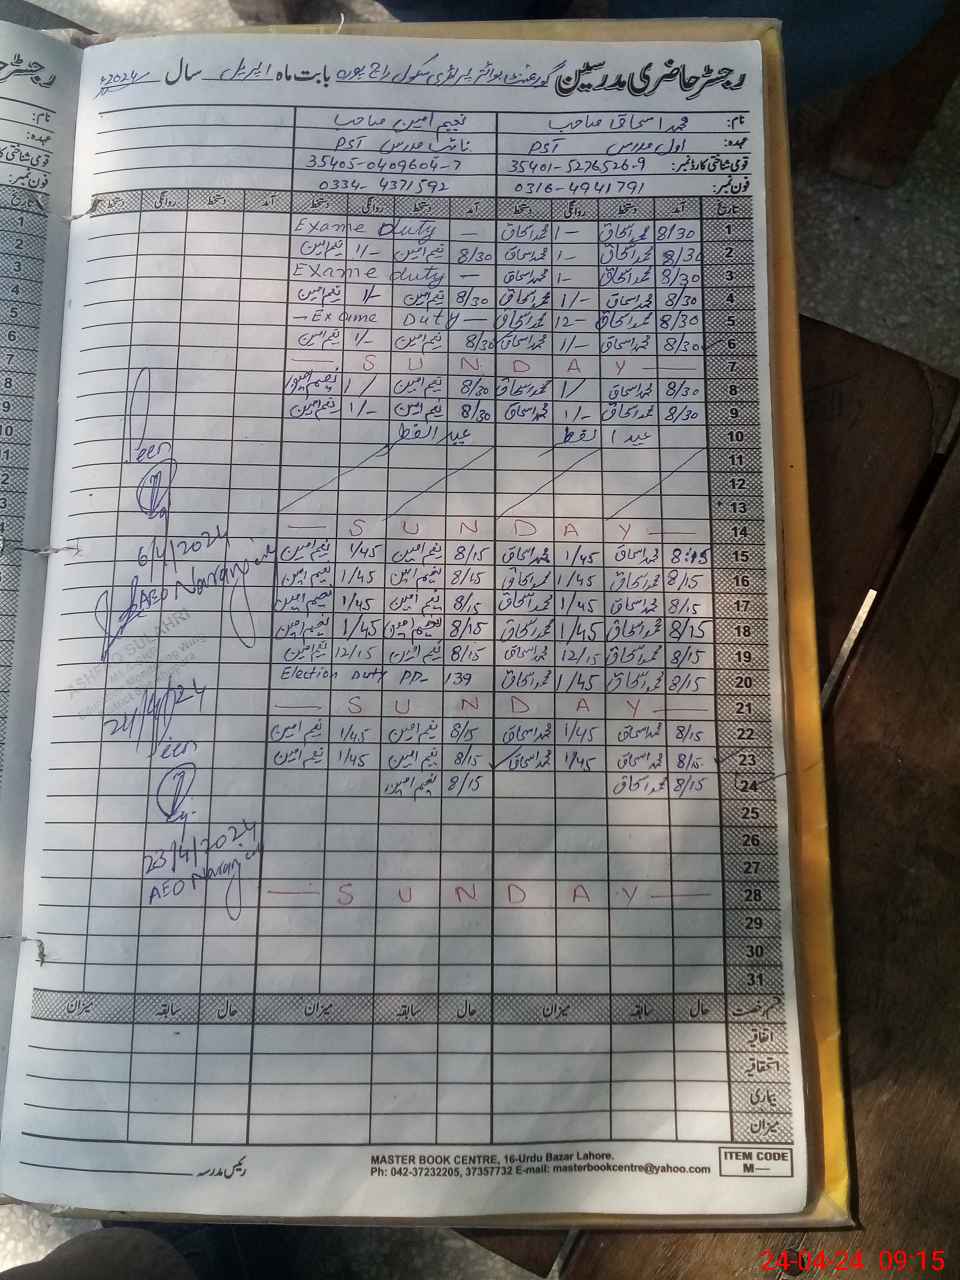 رجسٹر حاضری مدرسین گورنمنٹ بوائز پرائمری سکول راج پورہ بابت ماہ اپریل سال 2024ء
نام: محمد اسحاق صاحب نعیم امین صاحب
عہدہ: اول مدرس PST نائب مدرس PST
قومی شناختی کارڈ نمبر: 35401-5276526-9 35405-0409604-7
فون نمبر: 0316-4941791 0334-4371592
تاریخ آمد دستخط روانگی دستخط آمد دستخط روانگی دستخط آمد دستخط روانگی دستخط
1 8/30 محمد اسحاق 1/- محمد اسحاق — Exame duty
2 8/30 محمد اسحاق 1/- محمد اسحاق 8/30 نعیم امین 1/- نعیم امین
3 8/30 محمد اسحاق 1/- محمد اسحاق — Exame duty
4 8/30 محمد اسحاق 1/- محمد اسحاق 8/30 نعیم امین 1/- نعیم امین
5 8/30 محمد اسحاق 12- محمد اسحاق — Exame Duty —
6 8/30 محمد اسحاق 1/- محمد اسحاق 8/30 نعیم امین 1/- نعیم امین
7 — S U N D A Y —
8 8/30 محمد اسحاق 1/ محمد اسحاق 8/30 نعیم امین 1/ نعیم امین
9 8/30 محمد اسحاق 1/- محمد اسحاق 8/30 نعیم امین 1/- نعیم امین
10 عید الفطر عید الفطر
11
12
13
14 — S U N D A Y —
15 8:15 محمد اسحاق 1/45 محمد اسحاق 8/15 نعیم امین 1/45 نعیم امین
16 8/15 محمد اسحاق 1/45 محمد اسحاق 8/15 نعیم امین 1/45 نعیم امین
17 8/15 محمد اسحاق 1/45 محمد اسحاق 8/15 نعیم امین 1/45 نعیم امین
18 8/15 محمد اسحاق 1/45 محمد اسحاق 8/15 نعیم امین 1/45 نعیم امین
19 8/15 محمد اسحاق 12/15 محمد اسحاق 8/15 نعیم امین 12/15 نعیم امین
20 8/15 محمد اسحاق 1/45 محمد اسحاق Election Duty PP- 139
21 — S U N D A Y —
22 8/15 محمد اسحاق 1/45 محمد اسحاق 8/15 نعیم امین 1/45 نعیم امین
23 8/15 محمد اسحاق 1/45 محمد اسحاق 8/15 نعیم امین 1/45 نعیم امین
24 8/15 محمد اسحاق 8/15 نعیم امین
25
26
27
28 — S U N D A Y —
29
30
31
Seen
6/4/2024
AEO Narang
24/4/24
Seen
23/4/2024
AEO Narang
قسم رخصت حال سابقہ میزان حال سابقہ میزان حال سابقہ میزان
اتفاقیہ
استحقاقیہ
بیماری
میزان
رئیس مدرسہ
MASTER BOOK CENTRE, 16-Urdu Bazar Lahore.
Ph: 042-37232205, 37357732 E-mail: masterbookcentre@yahoo.com
ITEM CODE
M—
24-04-24 09:15